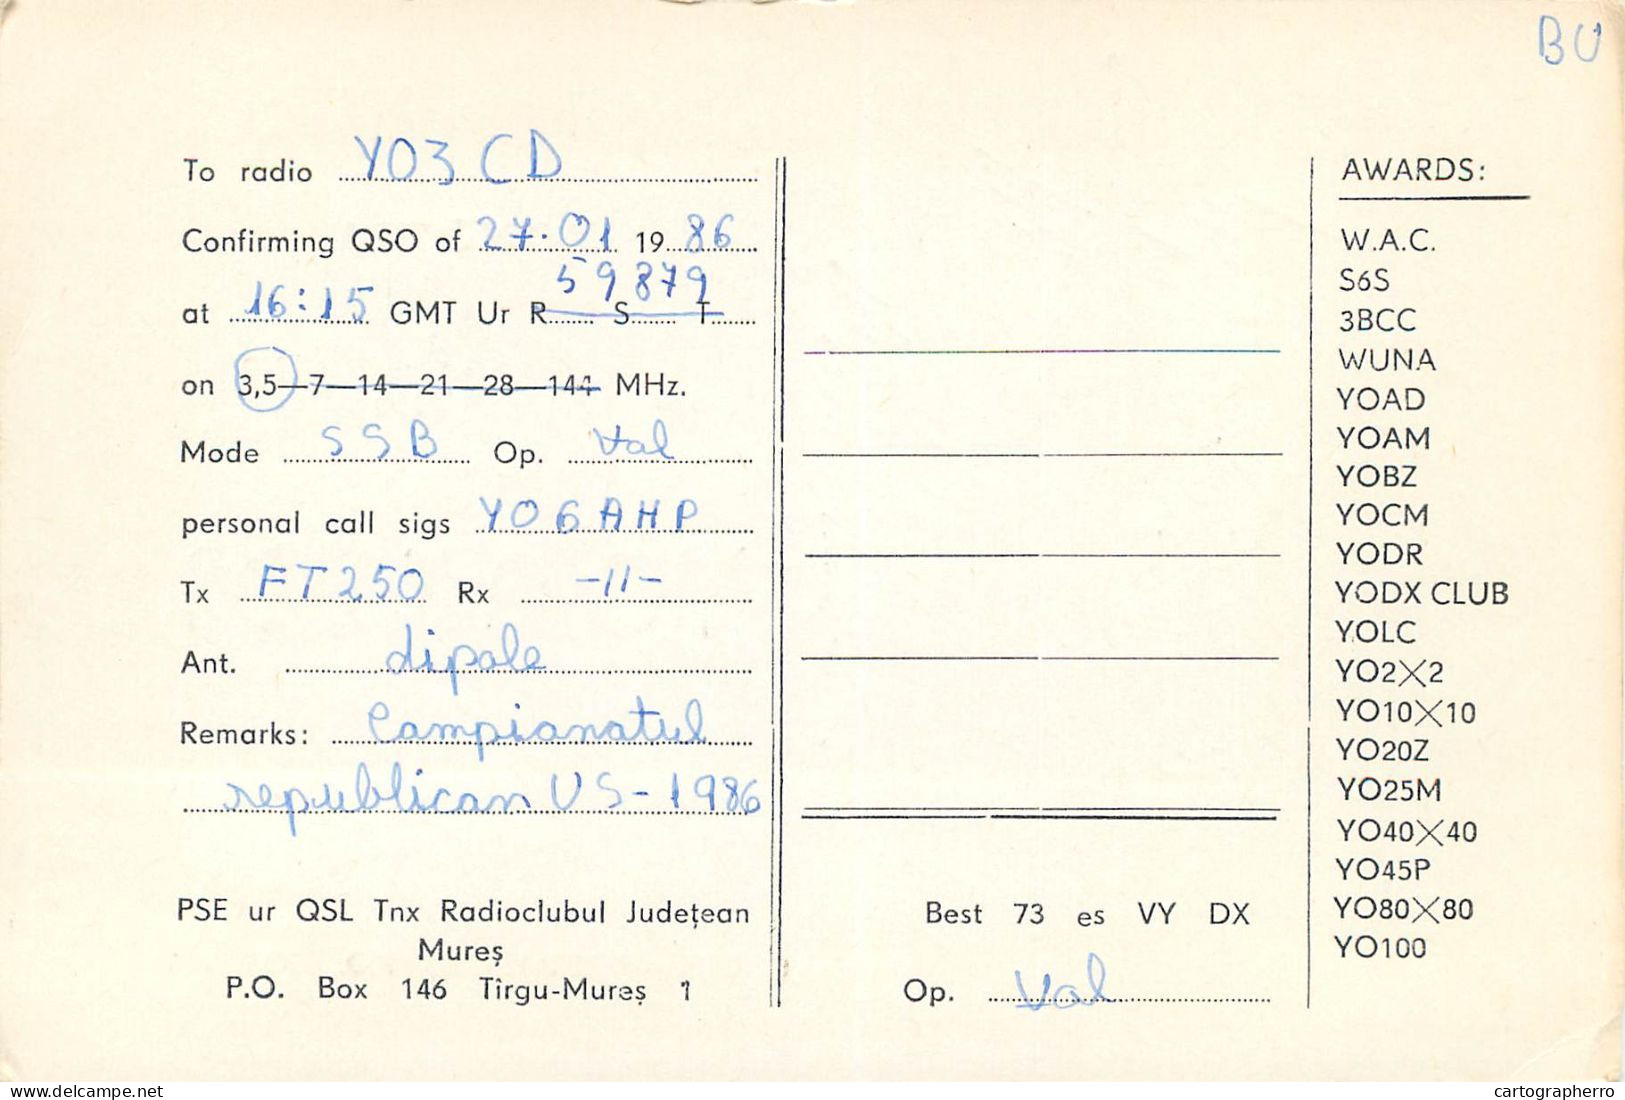 BU
To radio YO3CD
Confirming QSO of 27.01 1986
59879
at 16:15 GMT Ur R S T
on 3,5—7—14—21—28—144 MHz.
Mode SSB Op. Val
personal call sigs YO6AHP
Tx FT250 Rx -11-
Ant. dipole
Remarks: Campionatul
republican US-1986
PSE ur QSL Tnx Radioclubul Județean
Mureș
P.O. Box 146 Tîrgu-Mureș 1
Best 73 es VY DX
Op. Val
AWARDS:
W.A.C.
S6S
3BCC
WUNA
YOAD
YOAM
YOBZ
YOCM
YODR
YODX CLUB
YOLC
YO2X2
YO10X10
YO20Z
YO25M
YO40X40
YO45P
YO80X80
YO100
www.delcampe.net
cartographerro